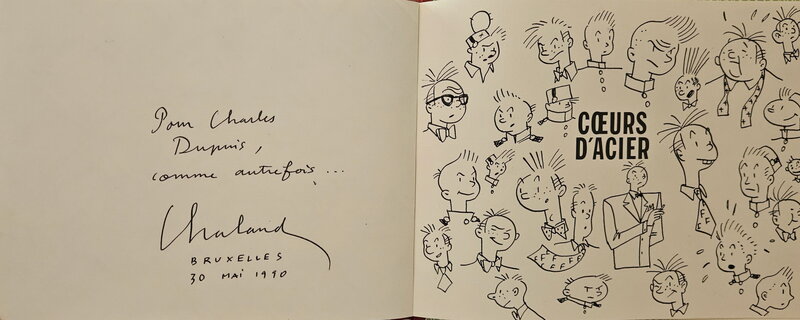 Pour Charles
Dupuis,
comme autrefois ...
Chaland
BRUXELLES
30 MAI 1990
CŒURS
D'ACIER